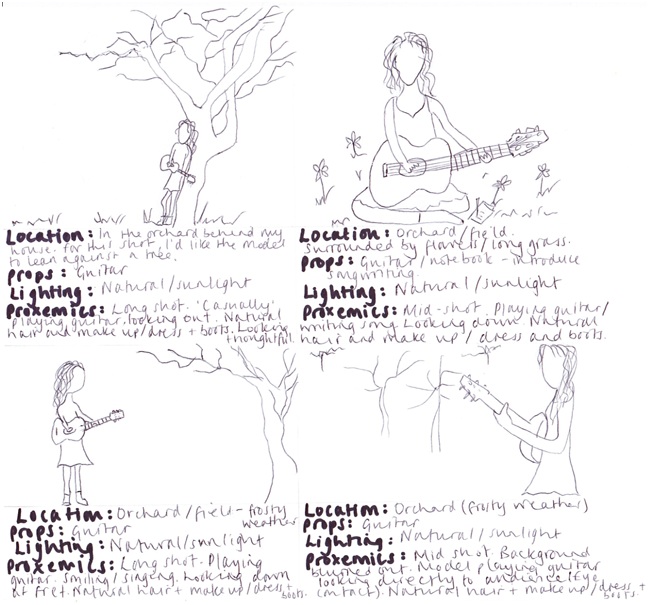 Location: In the orchard behind my
house. for this shot, I'd like the model
to lean against a tree.
Props: Guitar
Lighting: Natural/sunlight
Proxemics: Long shot. 'Casually'
playing guitar. looking out. Natural
hair and make up/dress + boots. Looking
thoughtful.
Location: Orchard/field.
surrounded by flowers/long grass.
Props: Guitar/notebook - introduce
songwriting.
Lighting: Natural/sunlight
Proxemics: Mid-shot. Playing guitar/
writing song. Looking down. Natural
hair and make up/dress and boots.
Location: Orchard/field - frosty
weather
Props: Guitar
Lighting: Natural/sunlight
Proxemics: Long shot. Playing
guitar. smiling/singing. Looking down
at fret. Natural hair + make up/dress +
boots.
Location: Orchard (frosty weather)
Props: Guitar
Lighting: Natural/sunlight
Proxemics: Mid shot. Background
blurred out. Model playing guitar
looking directly to audience (eye
contact). Natural hair + make up/dress +
boots.